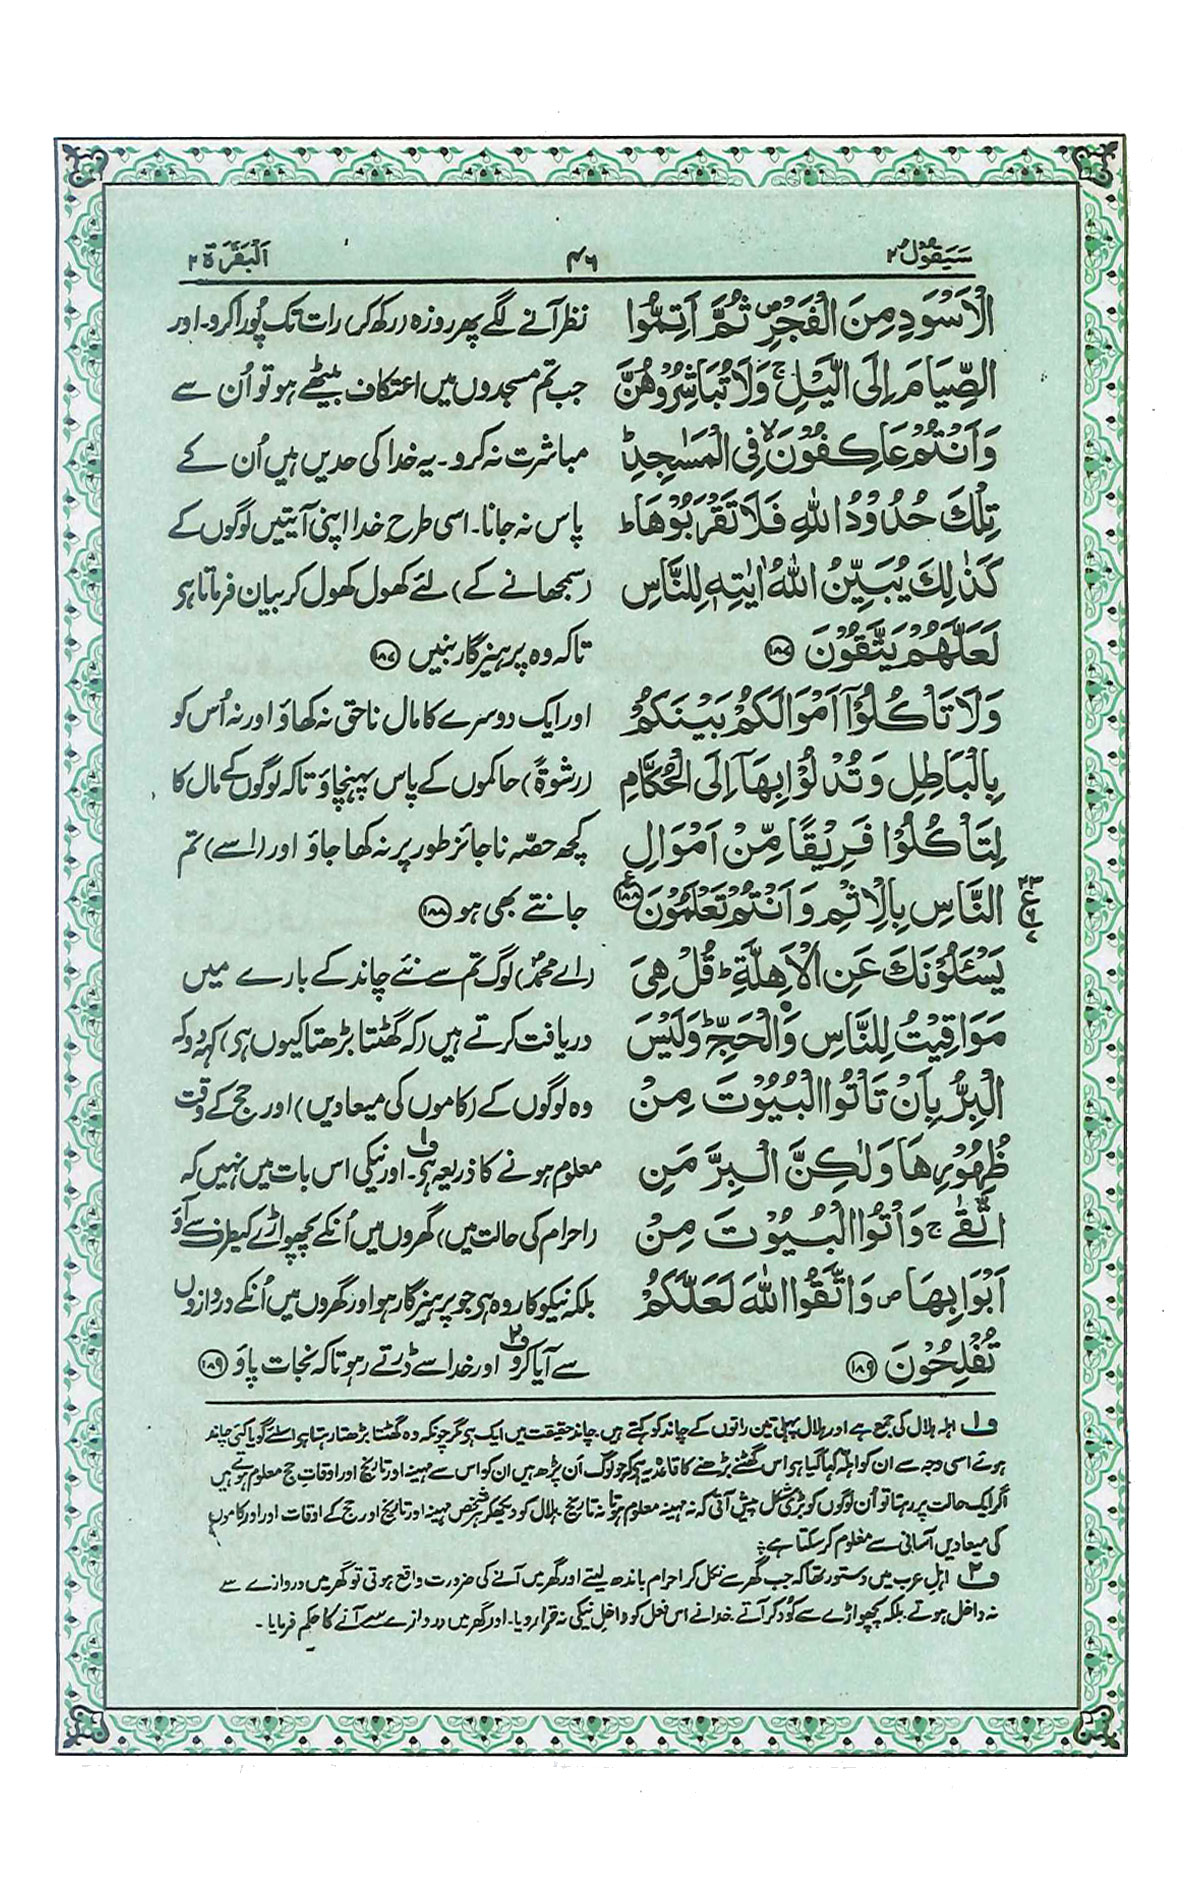 سَيَقُوْلُ ٢
٤٦
اَلْبَقَرَة ٢
الْاَسْوَدِ مِنَ الْفَجْرِ ص ثُمَّ اَتِمُّوا
الصِّيَامَ اِلَى الَّيْلِ ج وَلَا تُبَاشِرُوْهُنَّ
وَاَنْتُمْ عَاكِفُوْنَ لا فِي الْمَسٰجِدِ ط
تِلْكَ حُدُوْدُ اللّٰهِ فَلَا تَقْرَبُوْهَا ط
كَذٰلِكَ يُبَيِّنُ اللّٰهُ اٰيٰتِهٖ لِلنَّاسِ
لَعَلَّهُمْ يَتَّقُوْنَ ١٨٧
وَلَا تَاْكُلُوْٓا اَمْوَالَكُمْ بَيْنَكُمْ
بِالْبَاطِلِ وَتُدْلُوْا بِهَآ اِلَى الْحُكَّامِ
لِتَاْكُلُوْا فَرِيْقًا مِّنْ اَمْوَالِ
النَّاسِ بِالْاِثْمِ وَاَنْتُمْ تَعْلَمُوْنَ ١٨٨ ع
يَسْـَٔلُوْنَكَ عَنِ الْاَهِلَّةِ ط قُلْ هِيَ
مَوَاقِيْتُ لِلنَّاسِ وَالْحَجِّ ط وَلَيْسَ
الْبِرُّ بِاَنْ تَاْتُوا الْبُيُوْتَ مِنْ
ظُهُوْرِهَا وَلٰكِنَّ الْبِرَّ مَنِ
اتَّقٰى ج وَاْتُوا الْبُيُوْتَ مِنْ
اَبْوَابِهَا ص وَاتَّقُوا اللّٰهَ لَعَلَّكُمْ
تُفْلِحُوْنَ ١٨٩
نظر آنے لگے پھر روزہ (رکھ کر) رات تک پُورا کرو۔ اور
جب تم مسجدوں میں اعتکاف بیٹھے ہو تو اُن سے
مباشرت نہ کرو۔ یہ خدا کی حدیں ہیں اُن کے
پاس نہ جانا۔ اسی طرح خدا اپنی آیتیں لوگوں کے
(سمجھانے کے) لئے کھول کھول کر بیان فرماتا ہی
تاکہ وہ پرہیزگار بنیں ١٨٧
اور ایک دوسرے کا مال ناحق نہ کھاؤ اور نہ اُس کو
(رشوۃً) حاکموں کے پاس پہنچاؤ تاکہ لوگوں کے مال کا
کچھ حصّہ ناجائز طور پر نہ کھا جاؤ اور (اسے) تم
جانتے بھی ہو ١٨٨
(اے محمدؐ) لوگ تم سے نئے چاند کے بارے میں
دریافت کرتے ہیں (کہ گھٹتا بڑھتا کیوں ہی) کہہ دو کہ
وہ لوگوں کے (کاموں کی میعادیں) اور حج کے وقت
معلوم ہونے کا ذریعہ ہی ف۱۔ اور نیکی اس بات میں نہیں کہ
(احرام کی حالت میں) گھروں میں اُنکے پچھواڑے کیطرف سے آؤ
بلکہ نیکوکار وہ ہی جو پرہیزگار ہو اور گھروں میں اُنکے دروازوں
سے آیا کرو ف۲ اور خدا سے ڈرتے رہو تاکہ نجات پاؤ ١٨٩
ف۱ اہلہ ہلال کی جمع ہے اور ہلال پہلی تین راتوں کے چاند کو کہتے ہیں۔ چاند حقیقت میں ایک ہی مگر چونکہ وہ گھٹتا بڑھتا رہتا ہی اسلئے گویا کئی چاند
ہوئے اسی وجہ سے ان کو اہلّہ کہا گیا ہی اس گھٹنے بڑھنے کا قاعدہ یہ ہی کہ جو لوگ اَن پڑھ ہیں ان کو اس سے مہینہ اور تاریخ اور اوقاتِ حج معلوم ہوتے ہیں
اگر ایک حالت پر رہتا تو اُن لوگوں کو بڑی مشکل پیش آتی کہ نہ مہینہ معلوم ہوتا نہ تاریخ۔ ہلال کو دیکھکر ہر شخص مہینہ اور تاریخ اور حج کے اوقات اور اور کاموں
کی میعادیں آسانی سے معلوم کر سکتا ہے
ف۲ اہلِ عرب میں دستور تھا کہ جب گھر سے نکل کر احرام باندھ لیتے اور گھر میں آنے کی ضرورت واقع ہوتی تو گھر میں دروازے سے
نہ داخل ہوتے بلکہ پچھواڑے سے کُود کر آتے۔ خدا نے اس فعل کو داخلِ نیکی نہ قرار دیا۔ اور گھر میں دروازے سے آنے کا حکم فرمایا۔